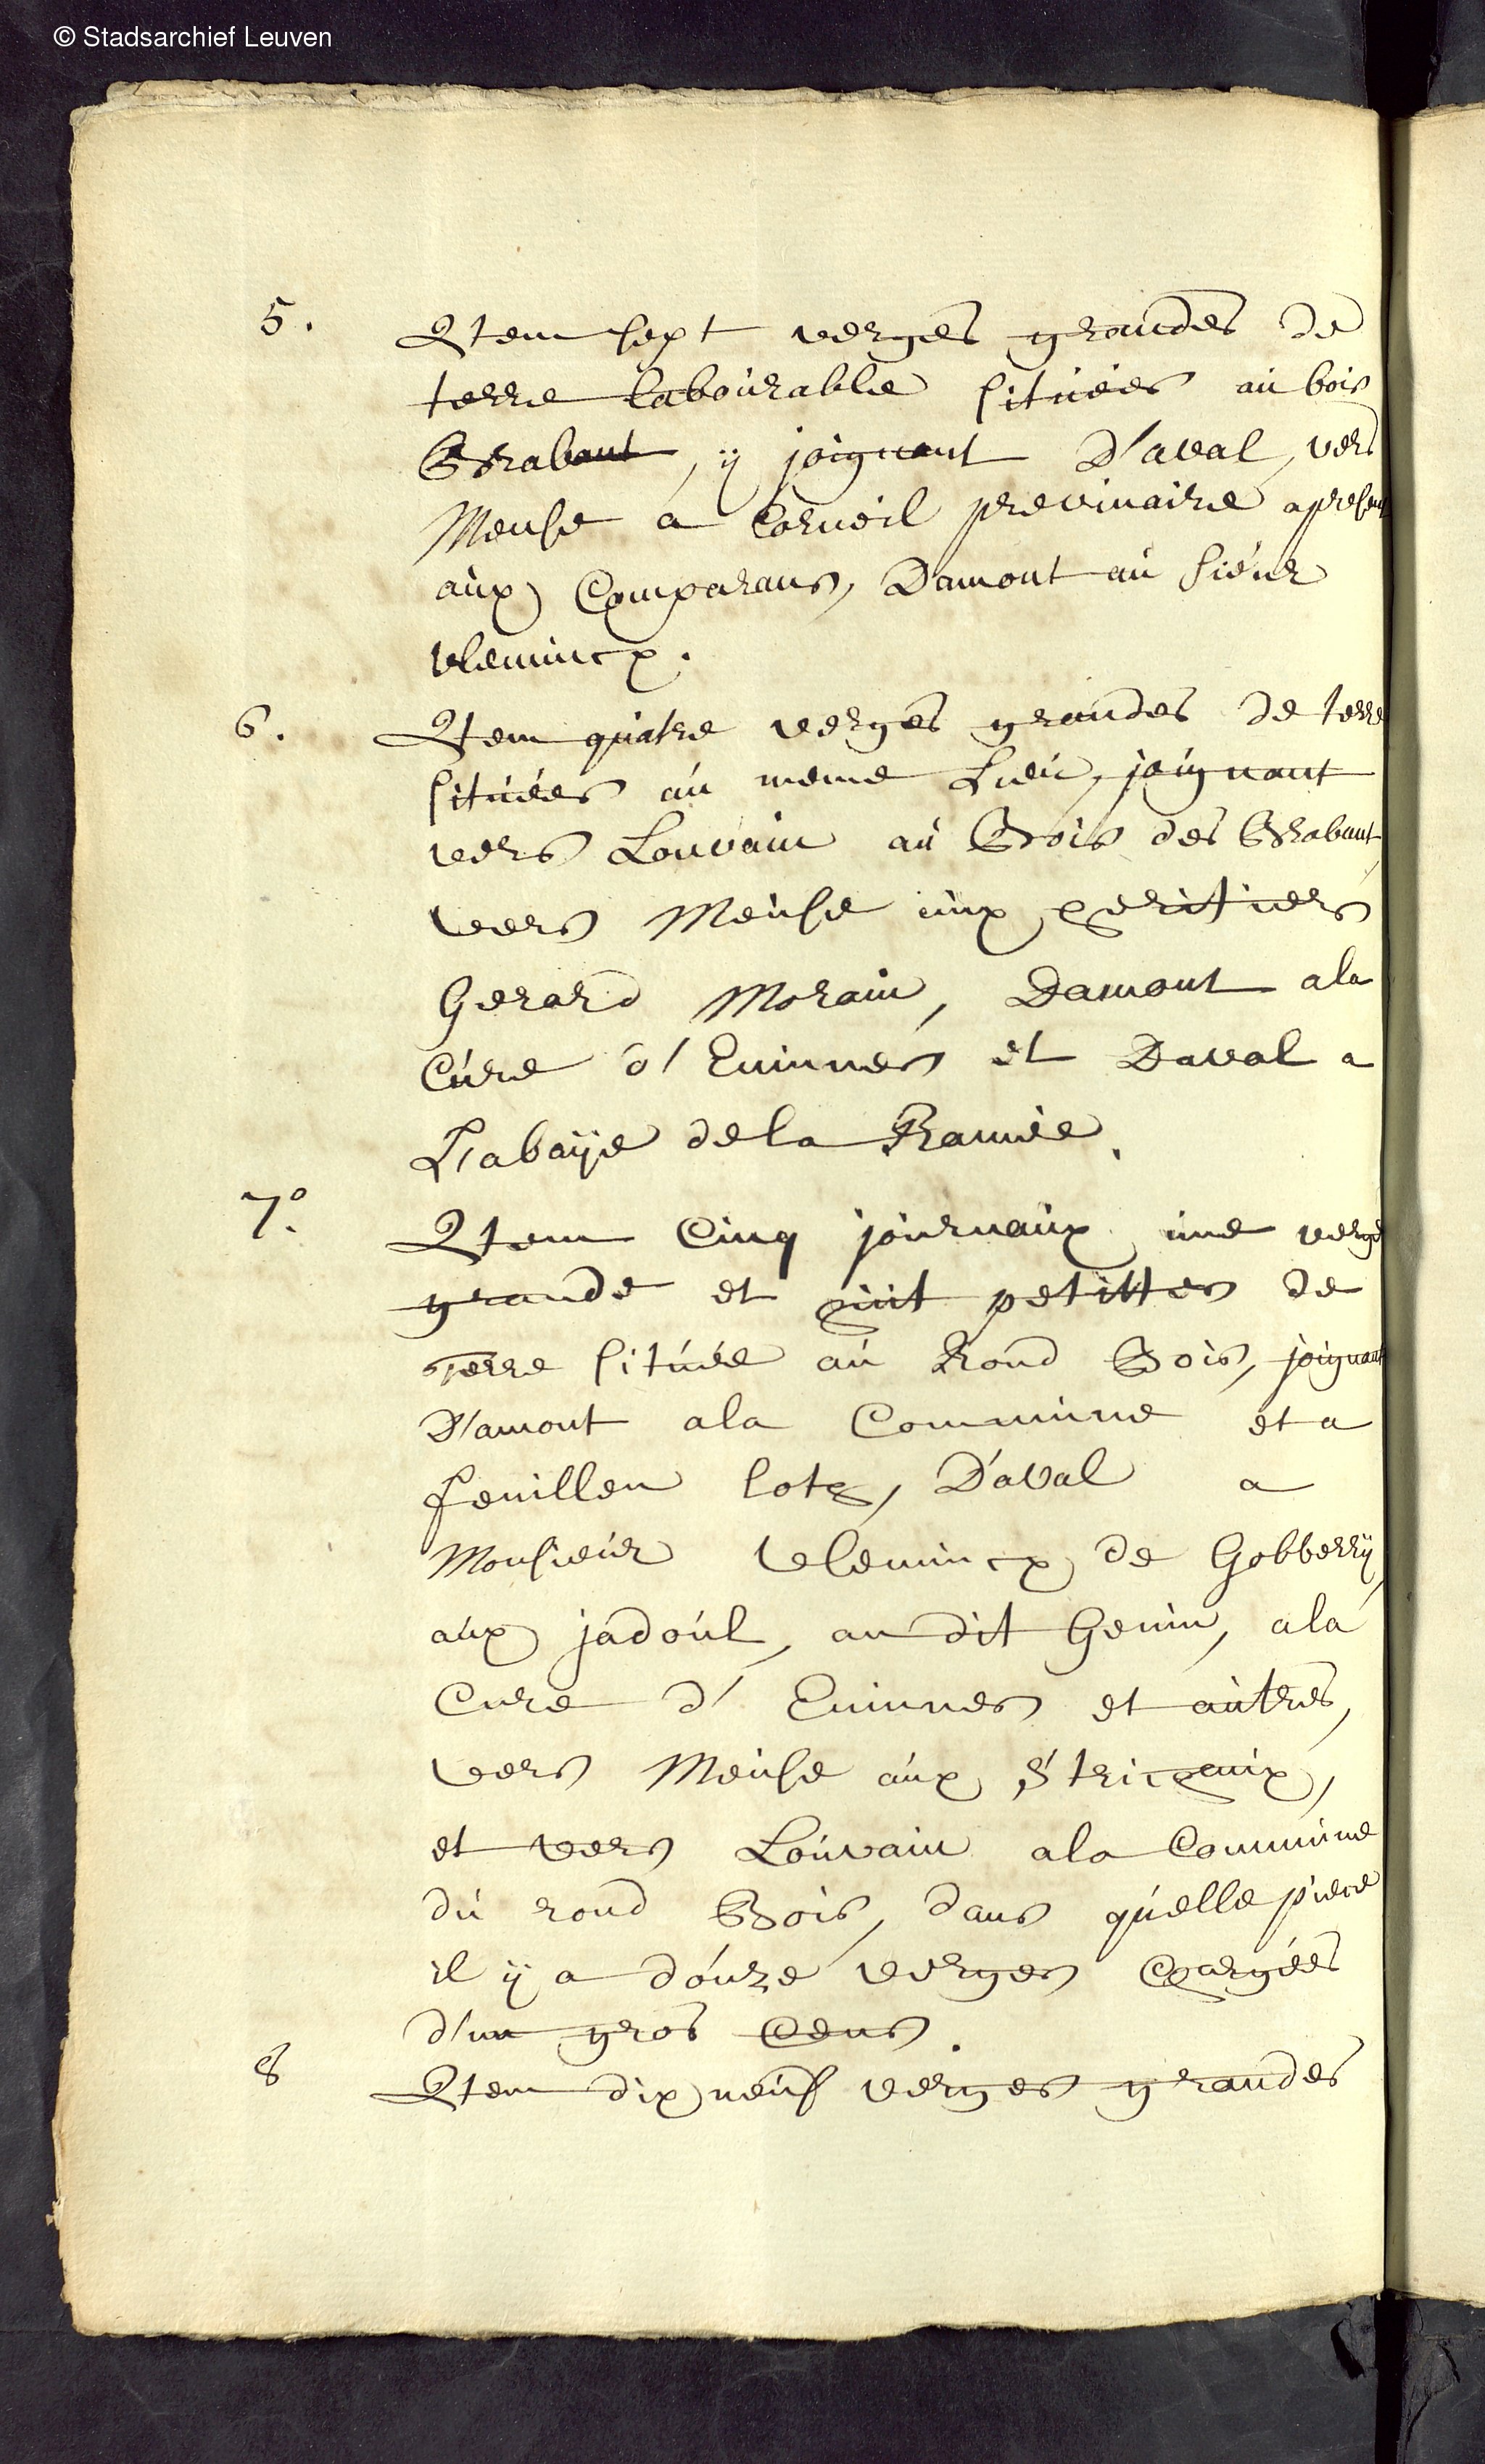 © Stadsarchief Leuven
5. Item sept verges grandes de
terre labourable situées au bois
Brabant, ÿ joignant D'aval, vers
Meuse a Corneil previnaire apresent
aux Comparans, Damont au sieur
Vlemincx.
6. Item quatre verges grandes de terre
situées au meme Lieu, joignant
vers Louvain au Bois des Brabant
vers Meuse aux heritiers
Gerard Morain, Damont ala
Cure d'Euinnes et Daval a
L'abaÿe dela Ramée.
7.o Item Cinq journaux une verge
grande et huit petittes de
Terre située au Rond Bois, joignant
D'amont ala Commune et a
feuillen lotz, D'aval a
Monsieur Vlemincx de Gobberÿ
aux jadoul, au dit Genin, ala
Cure d'Euinnes et autres,
vers Meuse aux Stricaux,
et vers Louvain ala Commune
du rond Bois, dans quelle piece
il ÿ a douze verges Chargées
d'un gros Cens.
8 Item dix neuf verges grandes